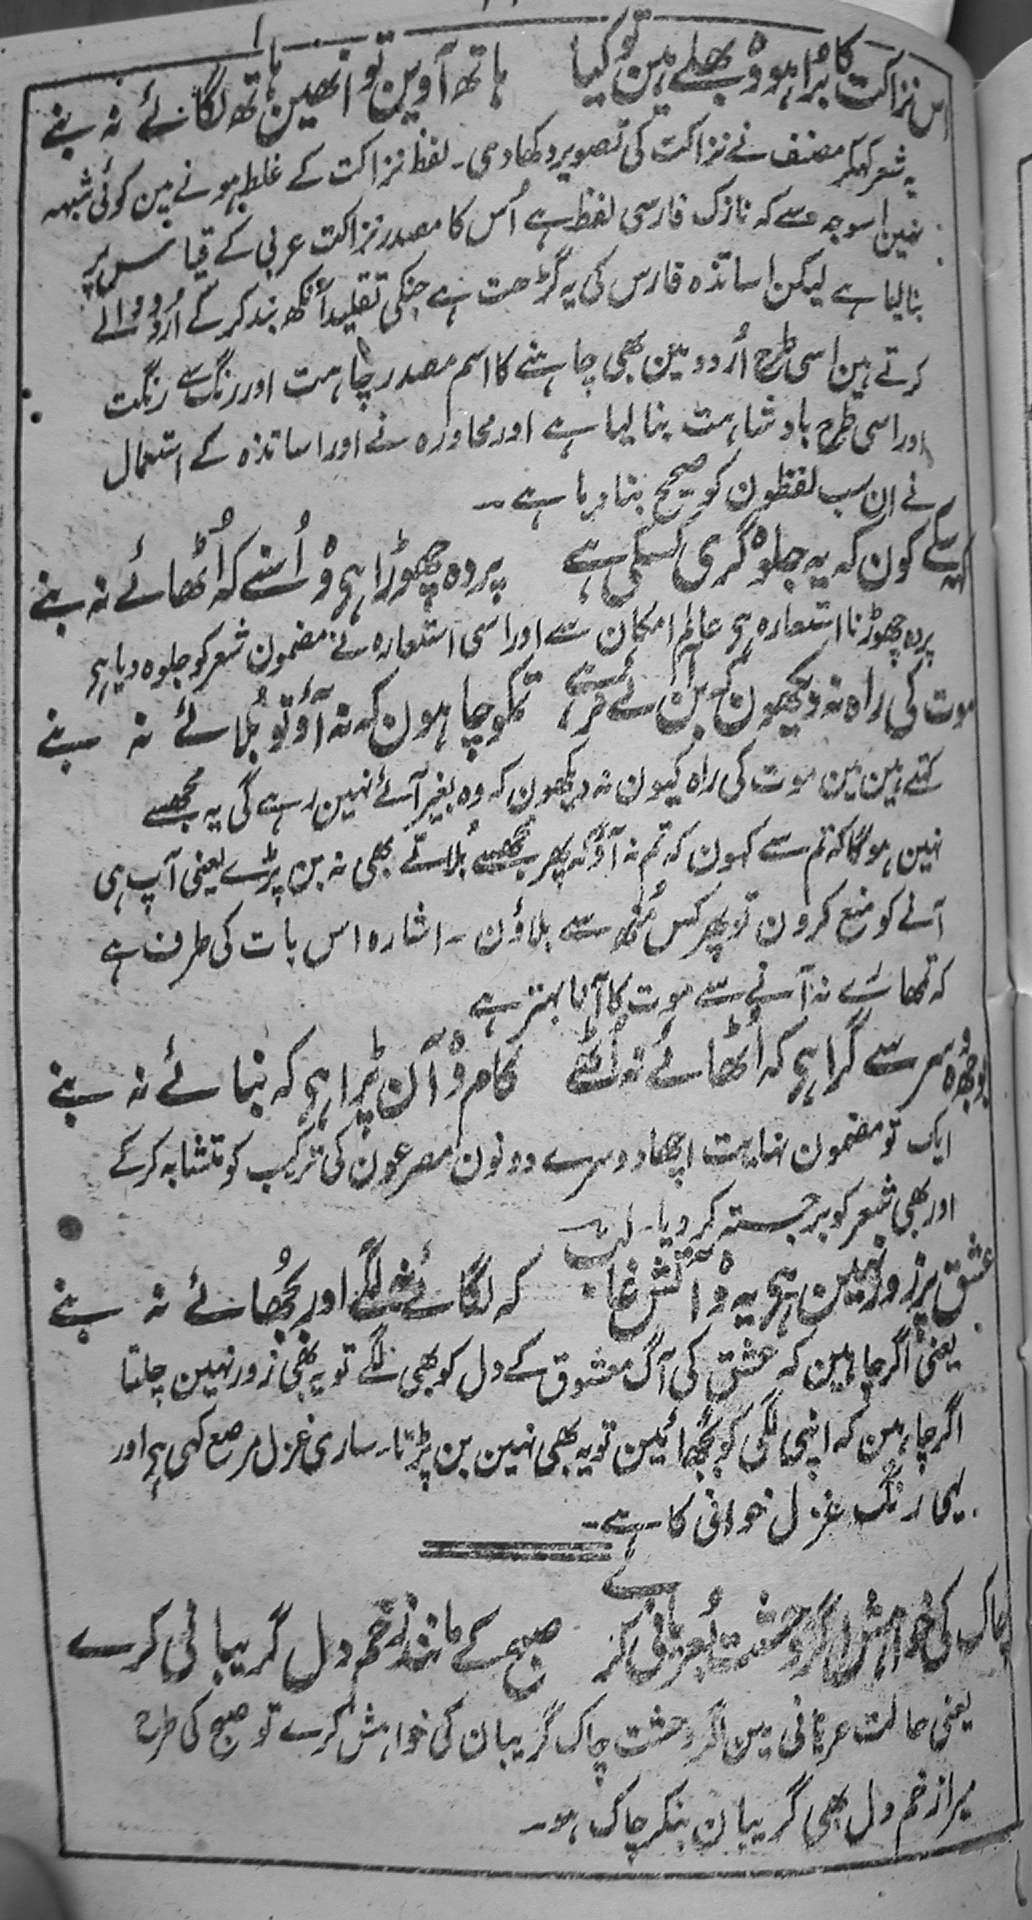 اس نزاکت کا برا ہو وہ بھلے ہین تو کیا ہاتھ آوین تو انھین ہاتھ لگائے نہ بنے
یہ شعر کہکر مصنف نے نزاکت کی تصویر دکھا دی۔ لفظ نزاکت کے غلط ہونے مین کوئی شبہہ
نہین اسوجہ سے کہ نازک فارسی لفظ ہے اُس کا مصدر نزاکت عربی کے قیاس پر
بنالیا ہے لیکن اساتذہ فارس کی یہ گڑھت ہے جنکی تقلید آنکھ بند کر کے اُردو والے
کرتے ہین اسی طرح اُردو مین بھی چاہنے کا اسم مصدر چاہت اور رنگ سے رنگت
اور اسی طرح بادشاہت بنا لیا ہے اور محاورہ نے اور اساتذہ کے استعمال
نے ان سب لفظون کو صحیح بنا دیا ہے۔
کہہ سکے کون کہ یہ جلوہ گری کسکی ہے پردہ چھوڑا ہی وہ اُسنے کہ اُٹھائے نہ بنے
پردہ چھوڑنا استعارہ ہی عالم امکان سے اور اسی استعارہ نے مضمون شعر کو جلوہ دیا ہی
موت کی راہ نہ دیکھون کہ بن آئے نہ رہے تمکو چاہون کہ نہ آؤ تو بُلائے نہ بنے
کہتے ہین مین موت کی راہ کیون نہ دیکھون کہ وہ بغیر آئے نہین رہے گی یہ مجھسے
نہین ہوگا کہ تم سے کہون کہ تم نہ آؤ کہ پھر مجھسے بُلاتے بھی نہ بن پڑے یعنی آپ ہی
آنے کو منع کرون تو پھر کس مُنھ سے بلاؤن۔ اشارہ اس بات کی طرف ہے
کہ تمھارے نہ آنے سے موت کا آنا بہتر ہے
بوجھ وہ سر سے گرا ہی کہ اُٹھائے نہ اُٹھے کام وہ آن پڑا ہی کہ بنائے نہ بنے
ایک تو مضمون نہایت اچھا دوسرے دونون مصرعون کی ترکیب کو متشابہ کر کے
اور بھی شعر کو برجستہ کر دیا۔
عشق پر زور نہین ہی یہ وہ آتش غالب کہ لگائے نہ لگے اور بجُھائے نہ بنے
یعنی اگر چاہین کہ عشق کی آگ معشوق کے دل کو بھی لگے تو یہ بھی زور نہین چلتا
اگر چاہین کہ اپنی لگی کو بُجھائین تو یہ بھی نہین بن پڑتا۔ ساری غزل مرصع کہی ہی اور
یہی رنگ غزل خوانی کا ہے۔
چاک کی خواہش اگر وحشت بُعریانی کرے صبح کے مانند زخم دل گریبانی کرے
یعنی حالت عریانی مین اگر وحشت چاک گریبان کی خواہش کرے تو صبح کی طرح
میرا زخم دل بھی گریبان بنکر چاک ہو۔